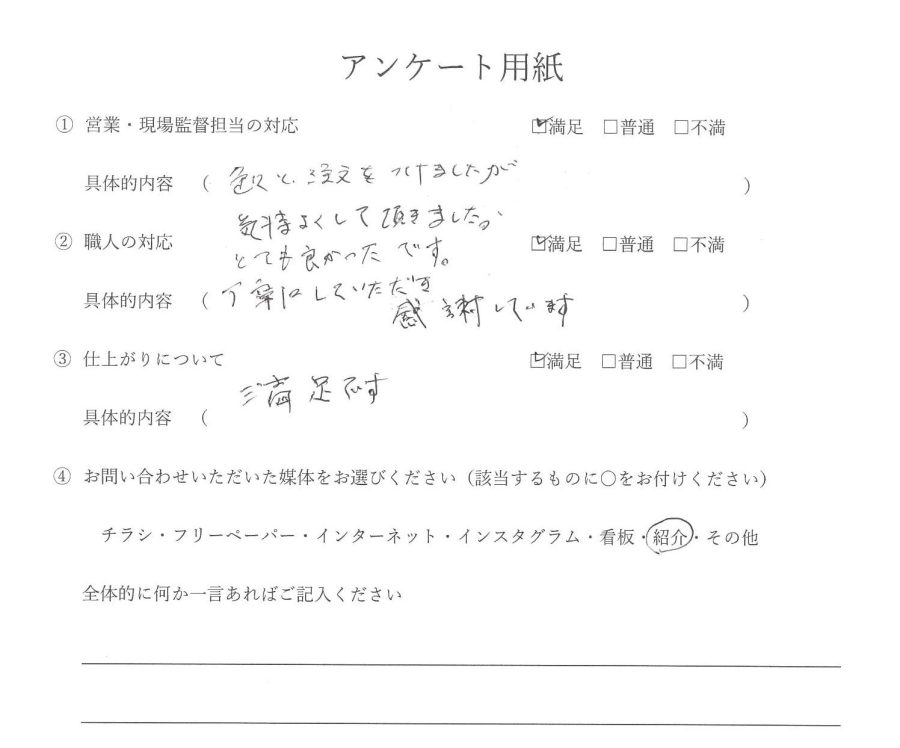 アンケート用紙
① 営業・現場監督担当の対応 ☑満足 □普通 □不満
具体的内容 ( 色々と注文をつけましたが )
気持よくして頂きました。
② 職人の対応 ☑満足 □普通 □不満
とても良かったです。
具体的内容 ( 丁寧にしていただき )
感謝しています
③ 仕上がりについて ☑満足 □普通 □不満
満足です
具体的内容 ( )
④ お問い合わせいただいた媒体をお選びください(該当するものに〇をお付けください)
チラシ・フリーペーパー・インターネット・インスタグラム・看板・紹介・その他
全体的に何か一言あればご記入ください